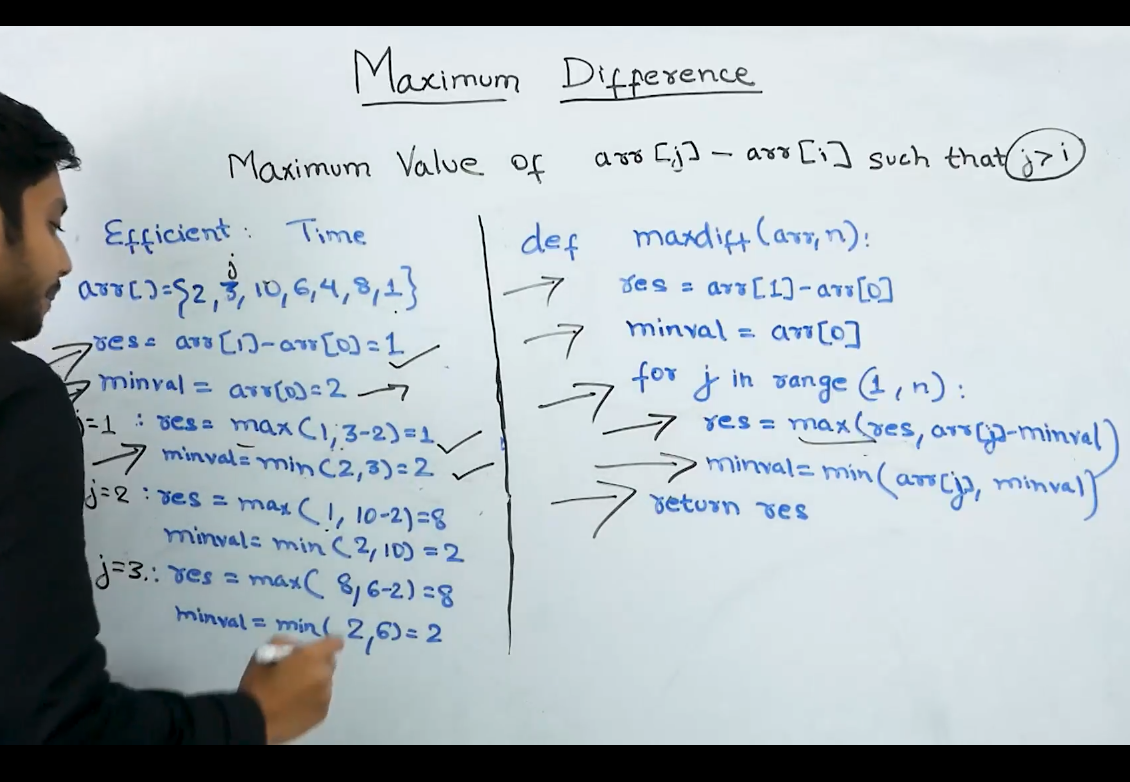 Maximum Difference
Maximum Value of arr[j] - arr[i] such that j>i
Efficient: Time
j
arr[]={2,3,10,6,4,8,1}
res= arr[1]-arr[0]=1
minval= arr[0]=2
=1 : res= max(1,3-2)=1
minval=min(2,3)=2
j=2 : res= max(1,10-2)=8
minval= min(2,10)=2
j=3: res= max(8,6-2)=8
minval= min(2,6)=2
def maxdiff(arr,n):
res = arr[1]-arr[0]
minval = arr[0]
for j in range(1,n):
res = max(res, arr[j]-minval)
minval= min(arr[j], minval)
return res